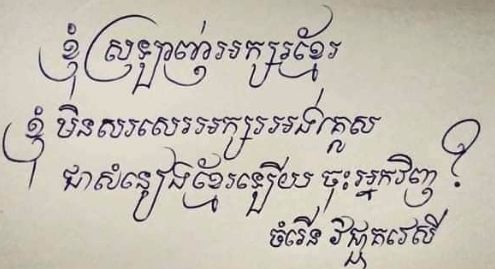 ខ្ញុំ ស្រឡាញ់អក្សរខ្មែរ
ខ្ញុំ មិនសរសេរអក្សរអង់គ្លេស
ជាសំនៀងខ្មែរឡើយ ចុះអ្នកវិញ ?
ចំរើន